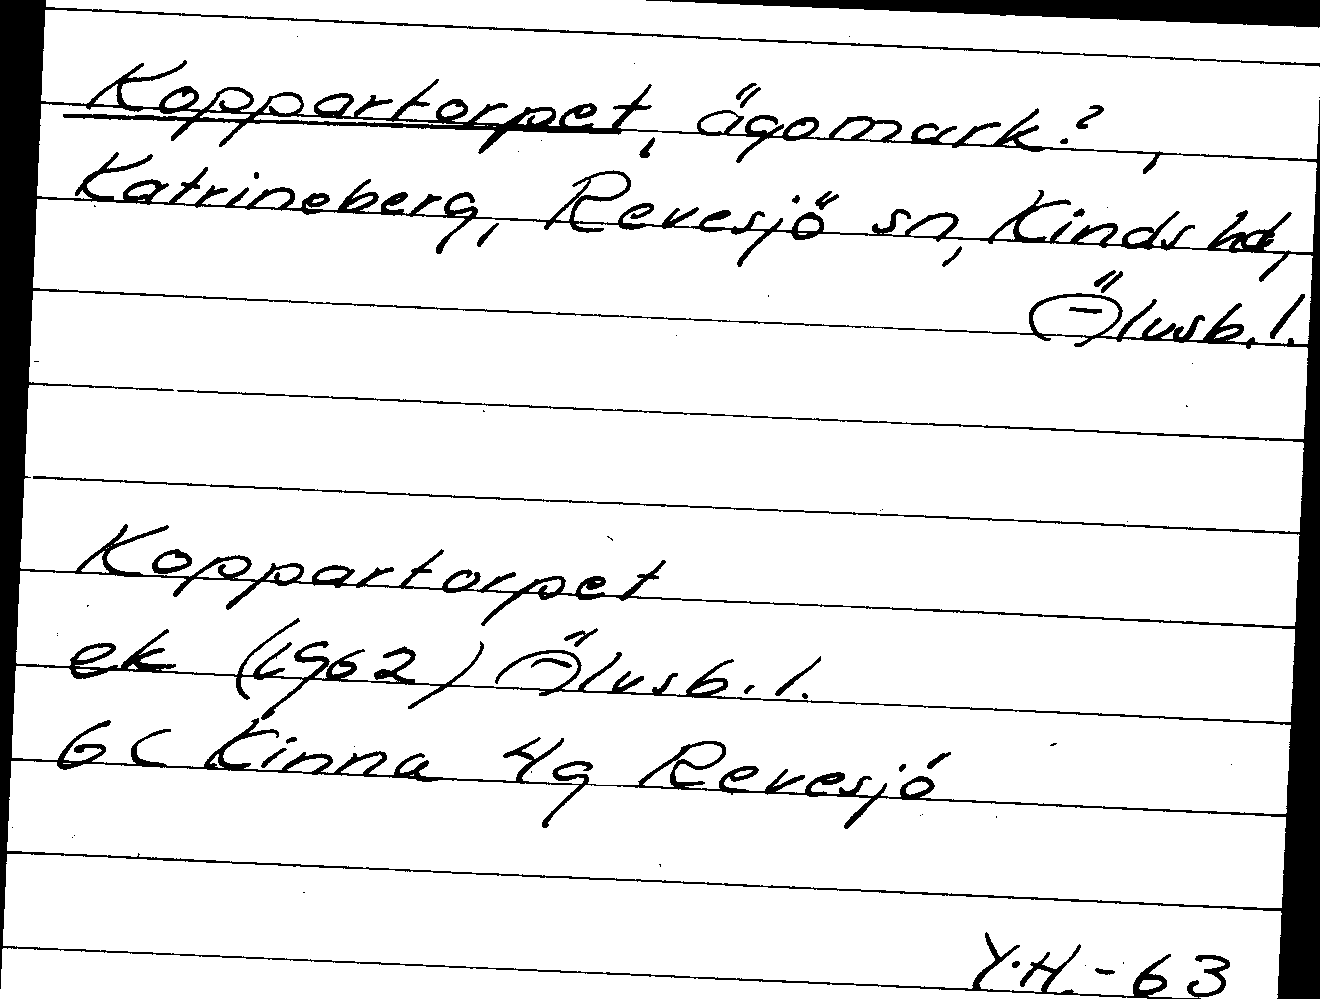 Koppartorpet, ägomark?,
Katrineberg, Revesjö sn, Kinds hd,
Älvsb. l.
Koppartorpet
ek (1962) Älvsb. l.
6C Kinna 4g Revesjö
Y.H. - 63